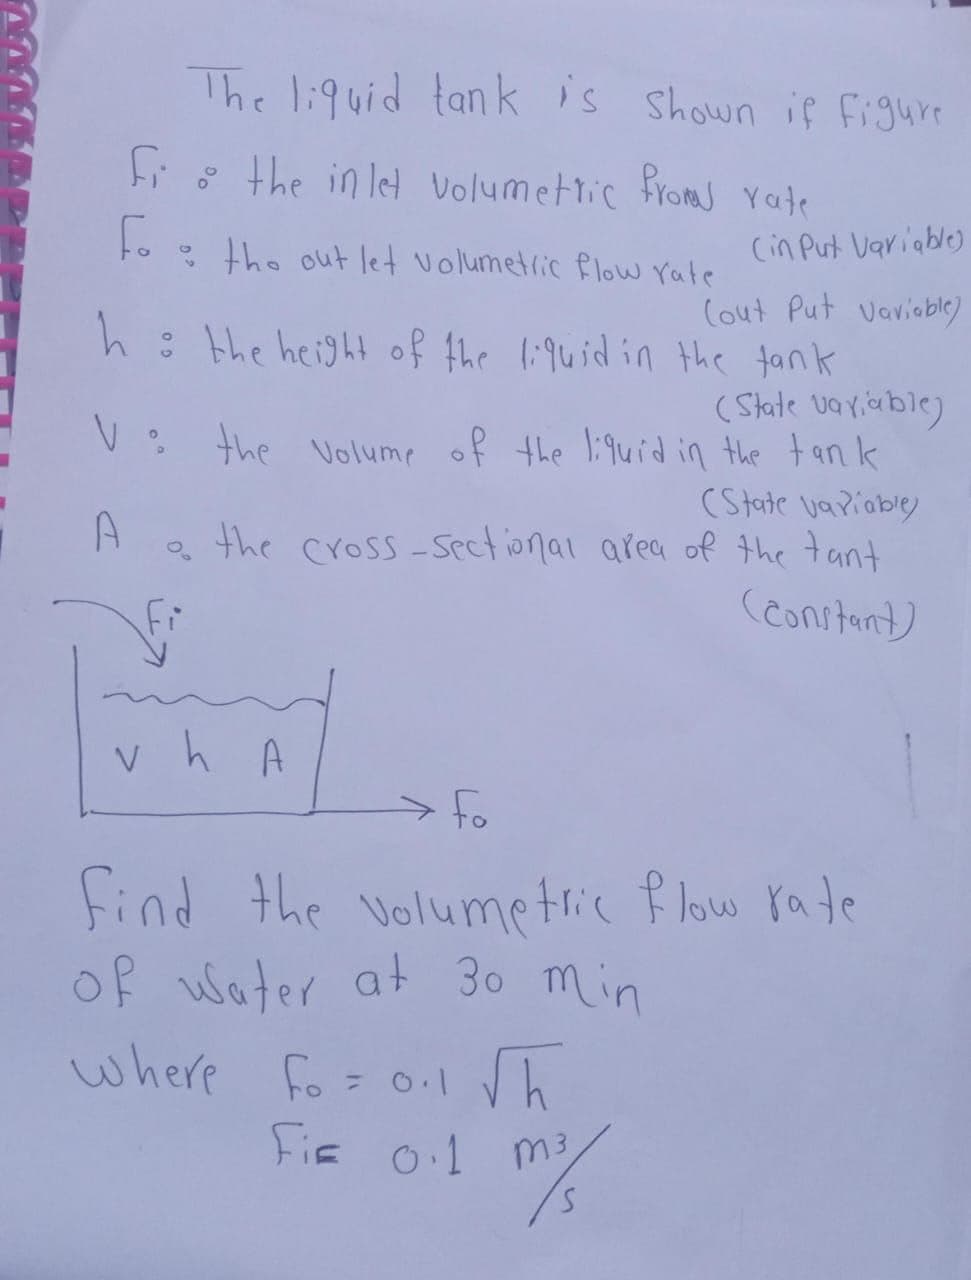 The liquid tank is shown if figure
Fi : the inlet volumetric rate
(input variable)
Fo : tho out let volumetric flow rate
(out put variable)
h : the height of the liquid in the tank
(State variable)
V : the volume of the liquid in the tank
(State variable)
A : the cross-sectional area of the tant
(constant)
Fi
V h A
Fo
Find the volumetric flow rate
of water at 30 min
where Fo = 0.1 √h
Fi= 0.1 m³/s